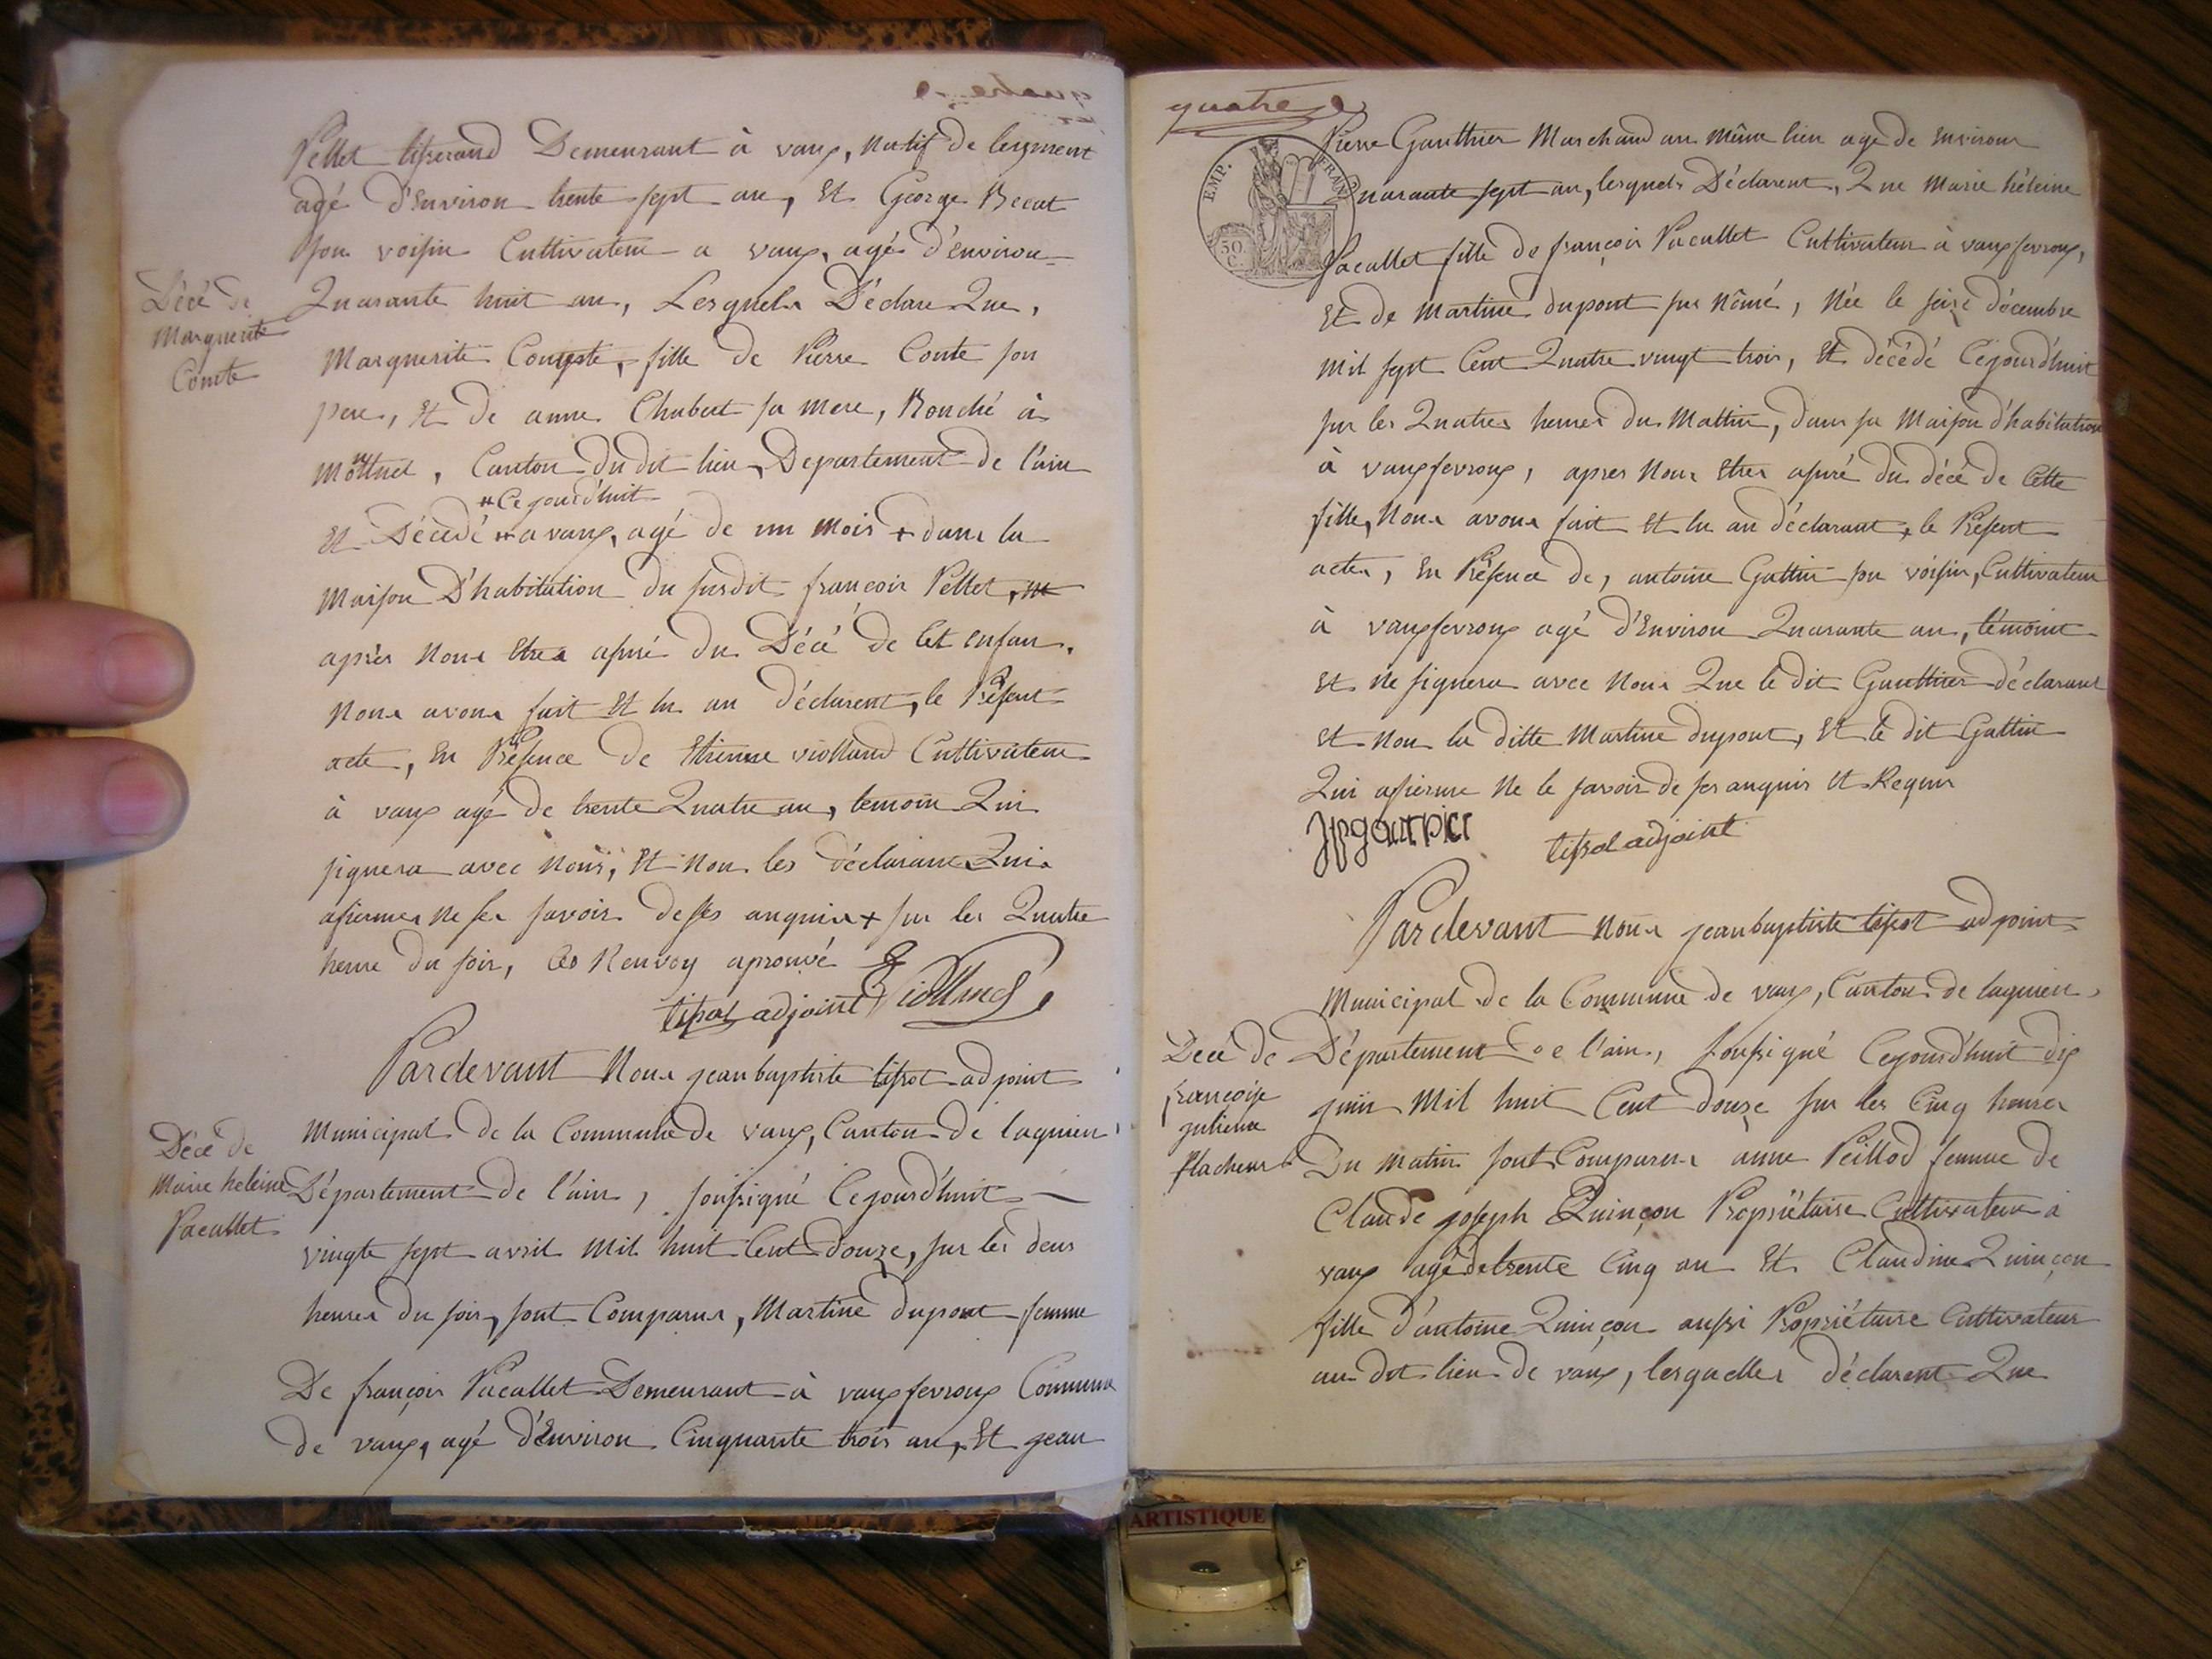 Pellet tisserand Demeurant à vaux, Natif de leyment
agé d'Environ trente sept an, Et George Recat
son voisin Cultivateur a vaux, agé d'environ
Décé de
Marguerite
Comte
Quarante huit an, Lesquels Déclare Que,
Marguerite Compte, fille de Pierre Conte son
pere, Et de anne Chabert sa mere,
Canton du dit lieu, Departement de l'ain
#Cejourd'huit
Et Décédé # a vaux, agé de un mois + dans la
Maison D'habitution du susdit françois Pellet,
après Nous Etres assuré du Décé de Cet enfan.
Nous avons fait Et lu au déclarent, le Présent
acte, En Présence de Etienne violland Cultivateur
à vaux agé de trente Quatre an, temoin Qui
signera avec Nous, Et Non les déclarans Qui
afirmer Ne ser savoir de ses anquir + sur les Quatre
heure du soir, Ces Renvoy aprouvé
tissot adjoint Violland
Pardevant Nous jean baptiste tissot adjoint
Décé de
Marie heleine
Pacallet
Municipal de la Commune de vaux, Canton de lagnieu
Département de l'ain, sousigné Cejourd'huit
vingte sept avril Mil huit Cent douze, sur les deus
heures du soir, sont Comparus, Martine dupont femme
De françois Pacallet Demeurant à vauxfevroux Commune
de vaux, agé d'Environ Cinquante trois an, Et jean
quatre
EMP. FRAN
50
C.
Pierre Gauthier Marchand au même lieu agé de Environ
Quarante sept an, lesquels Déclarent, Que Marie héleine
Pacallet fille de françois Pacallet Cultivateur à vauxfevroux,
Et de Martine dupont sus Nômé, Née le seize décembre
Mil sept Cent Quatre vingt trois, Et décédé Cejourd'huit
sur les Quatres heures du Mattin, dans sa Maison d'habitation
à vauxfevroux, apres Nous Etres assuré du décé de Cette
fille, Nous avons fait Et lu au déclarant, le Présent
actes, En Présence de, antoine Gattin son voisin, Cultivateur
à vauxfevroux agé d'Environ Quarante an, témoint
Et Ne signera avec Nous Que le dit Gauthier déclarant
Et Non la ditte Martine dupont, Et le dit Gattin
Qui afirme Ne le savoir de ser anquir Et Requir
tissot adjoint
Pardevant Nous jean baptiste tissot adjoint
Municipal de la Commune de vaux, Canton de lagnieu,
Décé de
françoise
julienne
Département de l'ain, sousigné Cejourd'huit dix
juin Mil huit Cent douze sur les Cinq heures
Du matin sont Comparus anne Peillod femme de
Claude joseph Quinçon Propriétaire Cultivateur a
vaux agé de trente Cinq an Et Claudine Quinçon
fille d'antoine Quinçon aussi Propriétaire Cultivateur
au dit lieu de vaux, lesquelles déclarent Que
ARTISTIQUE